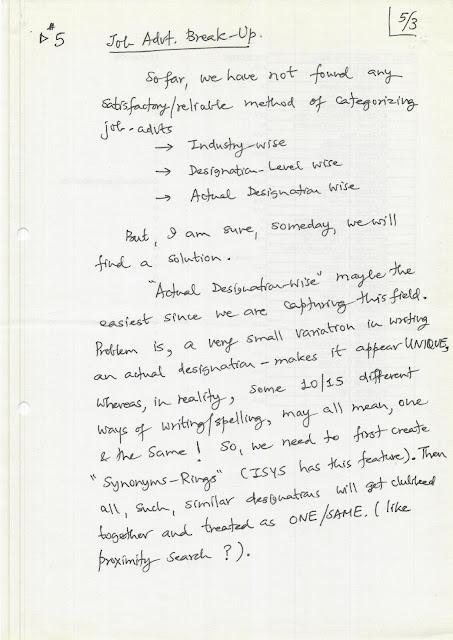 5/3
▷ #5 Job Advt. Break-Up.
So far, we have not found any
satisfactory/reliable method of categorizing
job-advts
→ Industry-wise
→ Designation-Level wise
→ Actual Designation wise
But, I am sure, someday, we will
find a solution.
"Actual Designation-wise" maybe the
easiest since we are capturing this field.
Problem is, a very small variation in writing
an actual designation - makes it appear UNIQUE,
whereas, in reality, some 10/15 different
ways of writing/spelling, may all mean, one
& the same! So, we need to first create
"Synonyms-Rings" (ISYS has this feature). Then
all, such, similar designations will get clubbed
together and treated as ONE/SAME. (like
proximity search?).